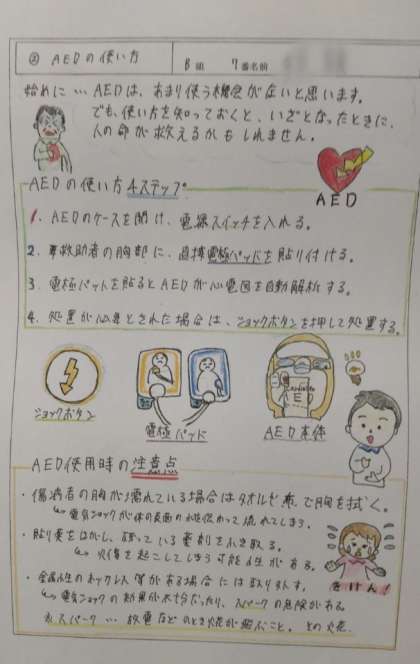 ② AEDの使い方
B組 7番名前
始めに … AEDは、あまり使う機会が在いと思います。
でも、使い方を知っておくと、いざとなったときに、
人の命が救えるかもしれません。
AED
AEDの使い方4ステップ
1. AEDのケースを開け、電源スイッチを入れる。
2. 救助者の胸部に、直接電極パッドを貼り付ける。
3. 電極パットを貼るとAEDが心電図を自動解析する。
4. 処置が必要とされた場合は、ショックボタンを押して処置する。
ショックボタン
電極パッド
AED本体
AED
AED使用時の注意点
・傷病者の胸が濡れている場合はタオルで胸を拭く。
↳電気ショックが体の表面の水を伝わって流れてしまう。
・貼り薬をはがし、残っている薬剤をふき取る。
↳火傷を起こしてしまう可能性がある。
きけん!
・金属性のネックレス等がある場合には取り外す。
↳電気ショックの効果が不十分だったり、スパークの危険がある。
スパーク … 放電などのとき火花が飛ぶこと。その火花。